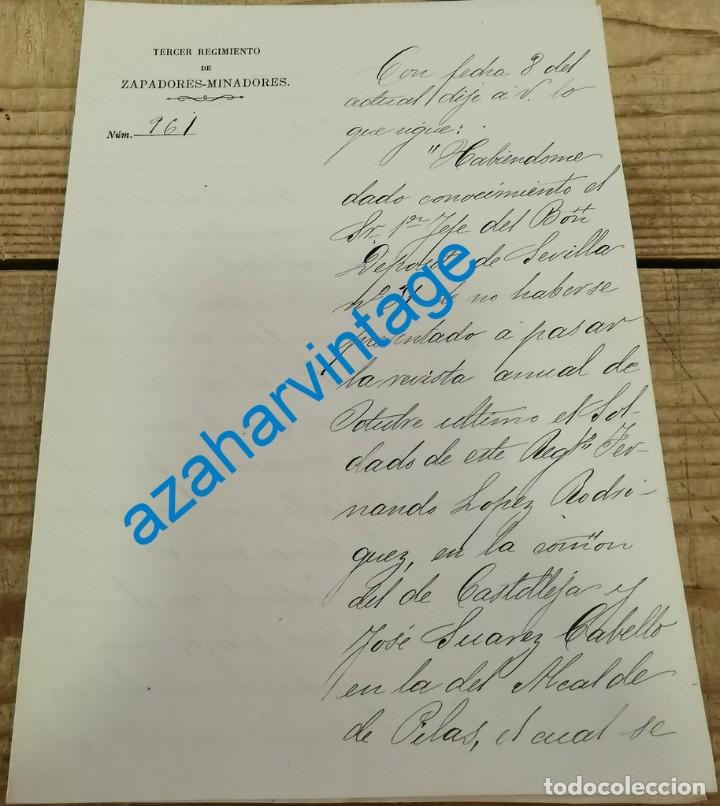 TERCER REGIMIENTO
DE
ZAPADORES-MINADORES.
Núm. 961
Con fecha 8 del
actual dije á V. lo
que sigue:
"Habiéndome
dado conocimiento el
Sr. 1er Jefe del Bón
Deposito de Sevilla
de no haberse
presentado a pasar
la revista anual de
Octubre ultimo el Sol-
dado de este Regto Fer-
nando Lopez Rodri-
guez, en la comón
del de Castilleja y
José Suarez Cabello
en la del Alcalde
de Pilas, el cual se
azaharvintage
todocoleccion